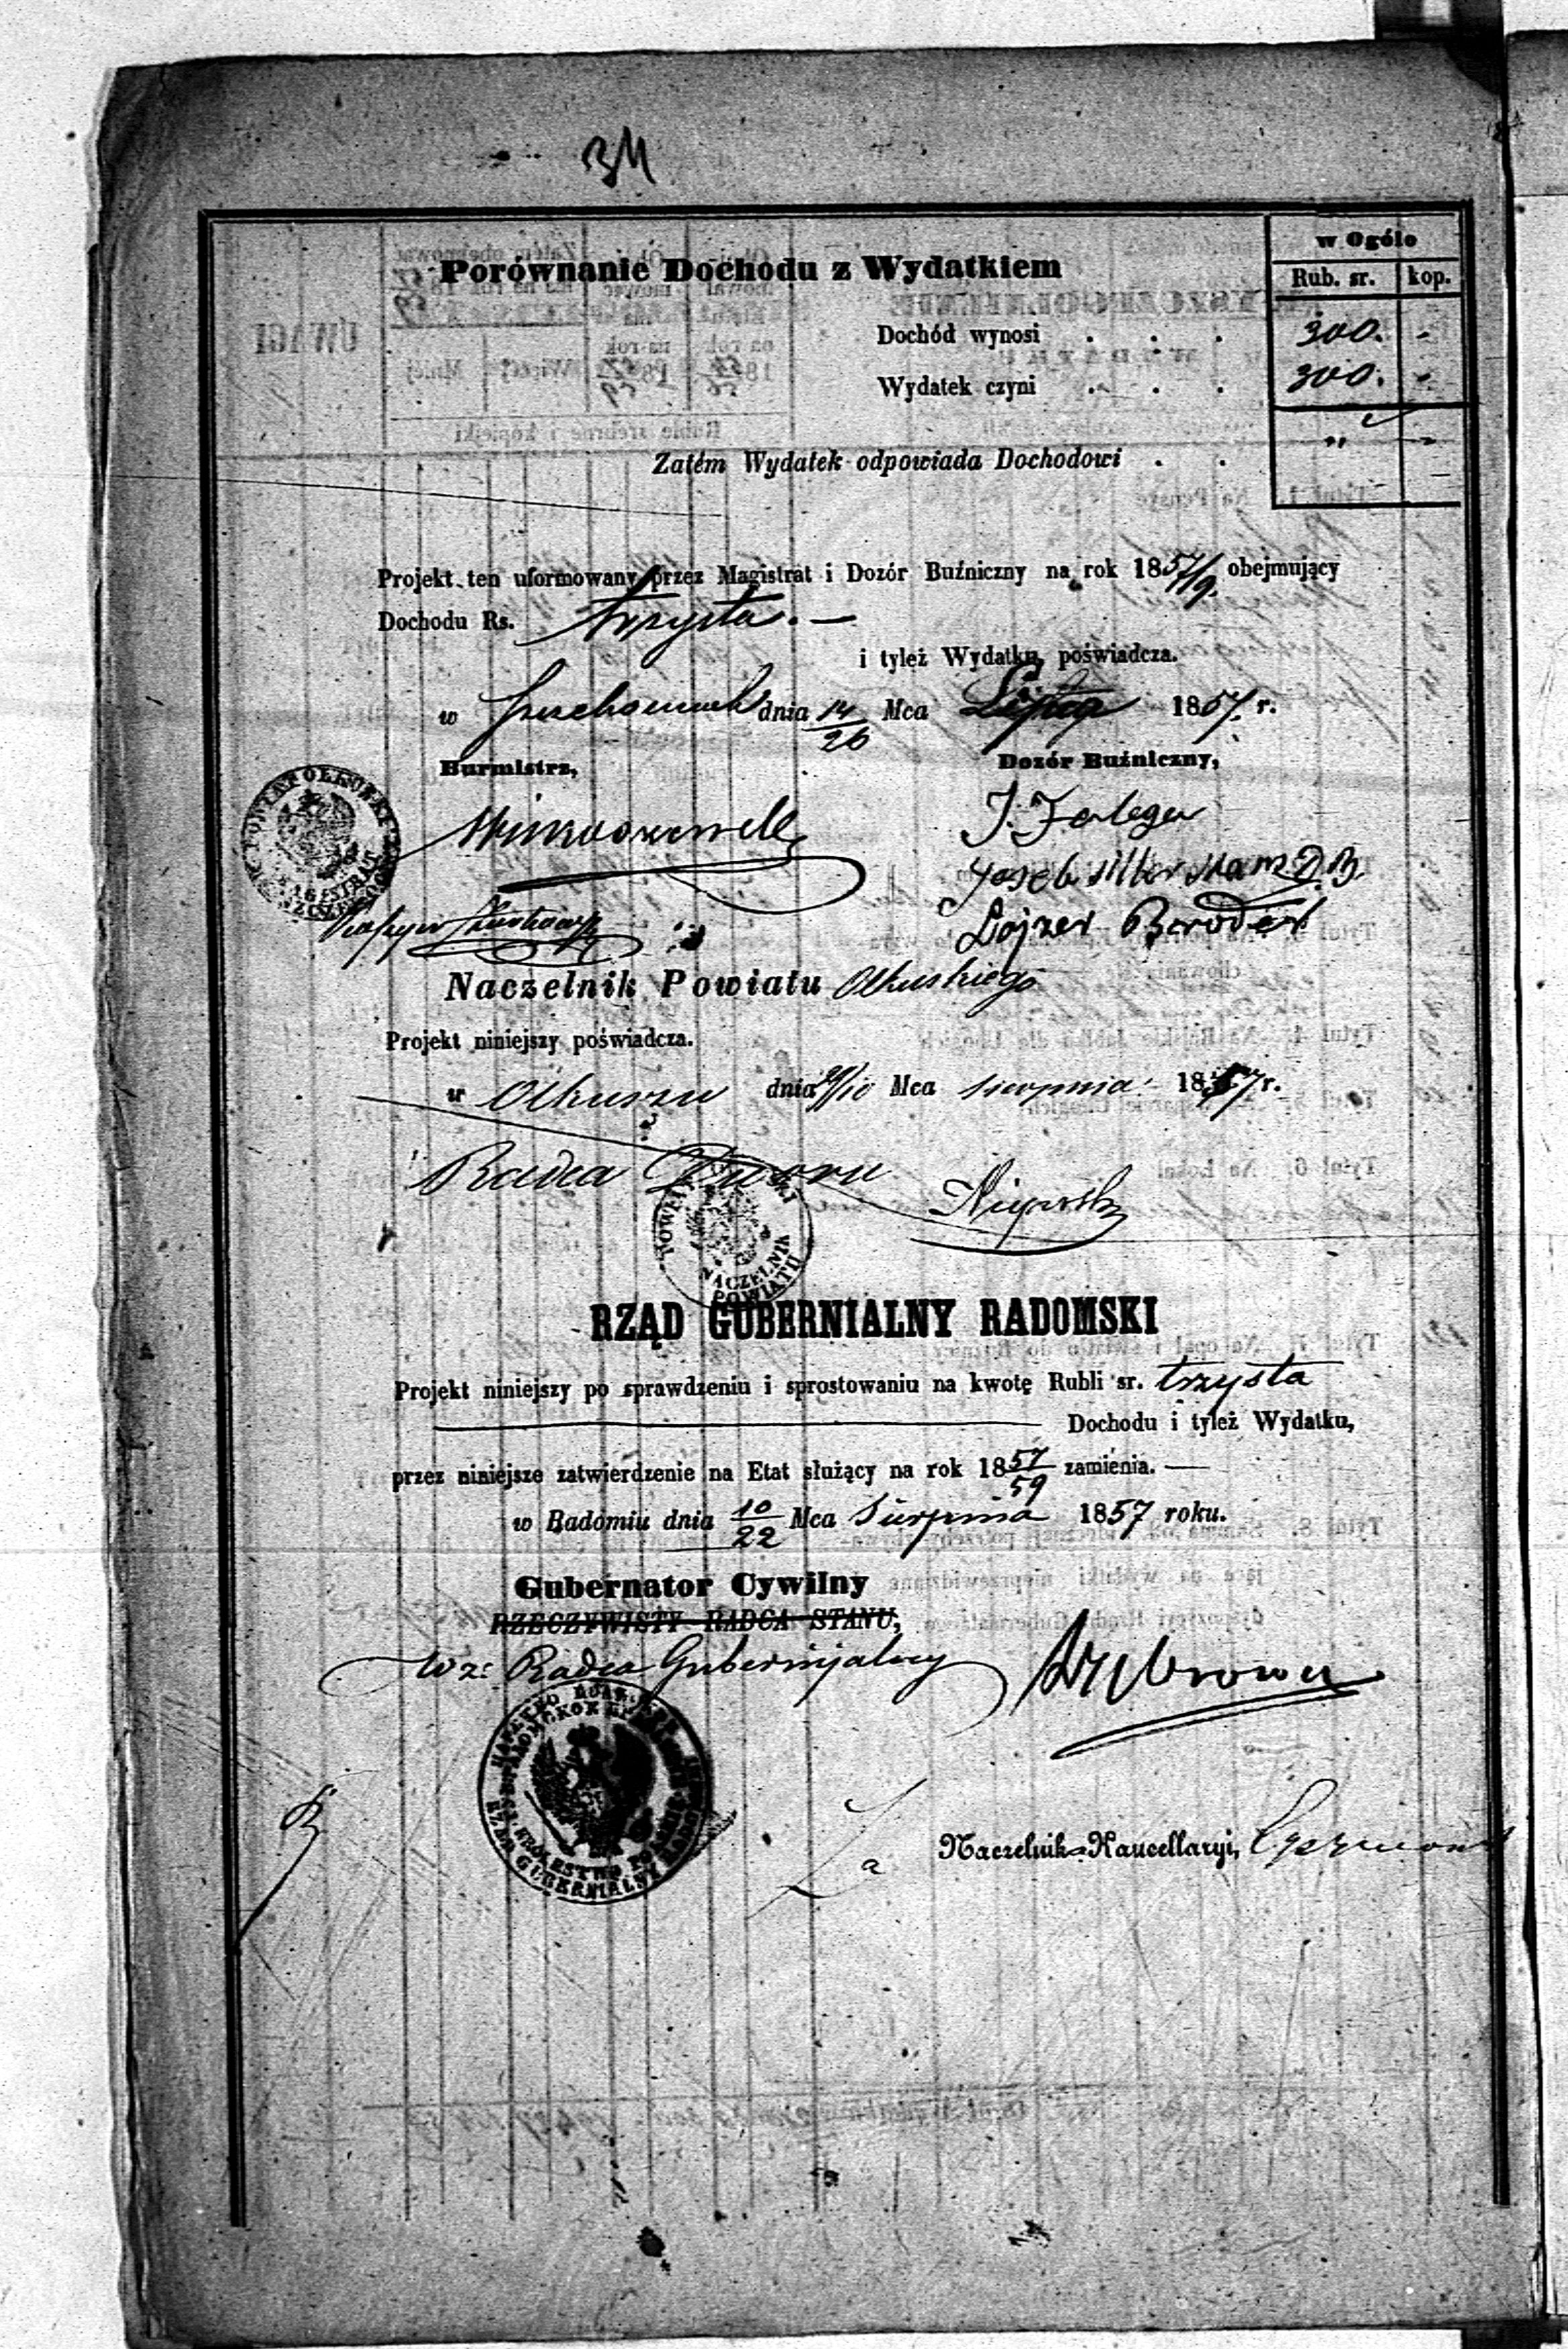 w Ogóle
Rub. sr. kop.
Porównanie Dochodu z Wydatkiem
Dochód wynosi . . . 300. -
Wydatek czyni . . . 300. -
Zatém Wydatek odpowiada Dochodowi . . „ -
Projekt ten uformowany przez Magistrat i Dozór Buźniczny na rok 1857/9. obejmujący
Dochodu Rs. trzysta. —
i tyleż Wydatku, poświadcza.
w dnia 14/26 Mca Lipca 1857. r.
Burmistrz, Dozór Buźniczny,
POWIAT OLKUSKI
MAGISTRAT
Josek Silberstam D.B.
Lojzer Broder
Naczelnik Powiatu Olkuskiego
Projekt niniejszy poświadcza.
w Olkuszu dnia /10 Mca sierpnia 1857 r.
Radca Dworu
POWIAT
NACZELNIK
POWIATU
RZĄD GUBERNIALNY RADOMSKI
Projekt niniejszy po sprawdzeniu i sprostowaniu na kwotę Rubli sr. trzysta
Dochodu i tyleż Wydatku,
przez niniejsze zatwierdzenie na Etat służący na rok 1857/59 zamienia. —
w Radomiu dnia 10/22 Mca Sierpnia 1857 roku.
Gubernator Cywilny
RZECZYWISTY RADCA STANU,
wz: Radca Gubernijalny
KRÓLESTWO POLSKIE
RZĄD GUBERNIALNY
Za Naczelnik Kancellaryi,